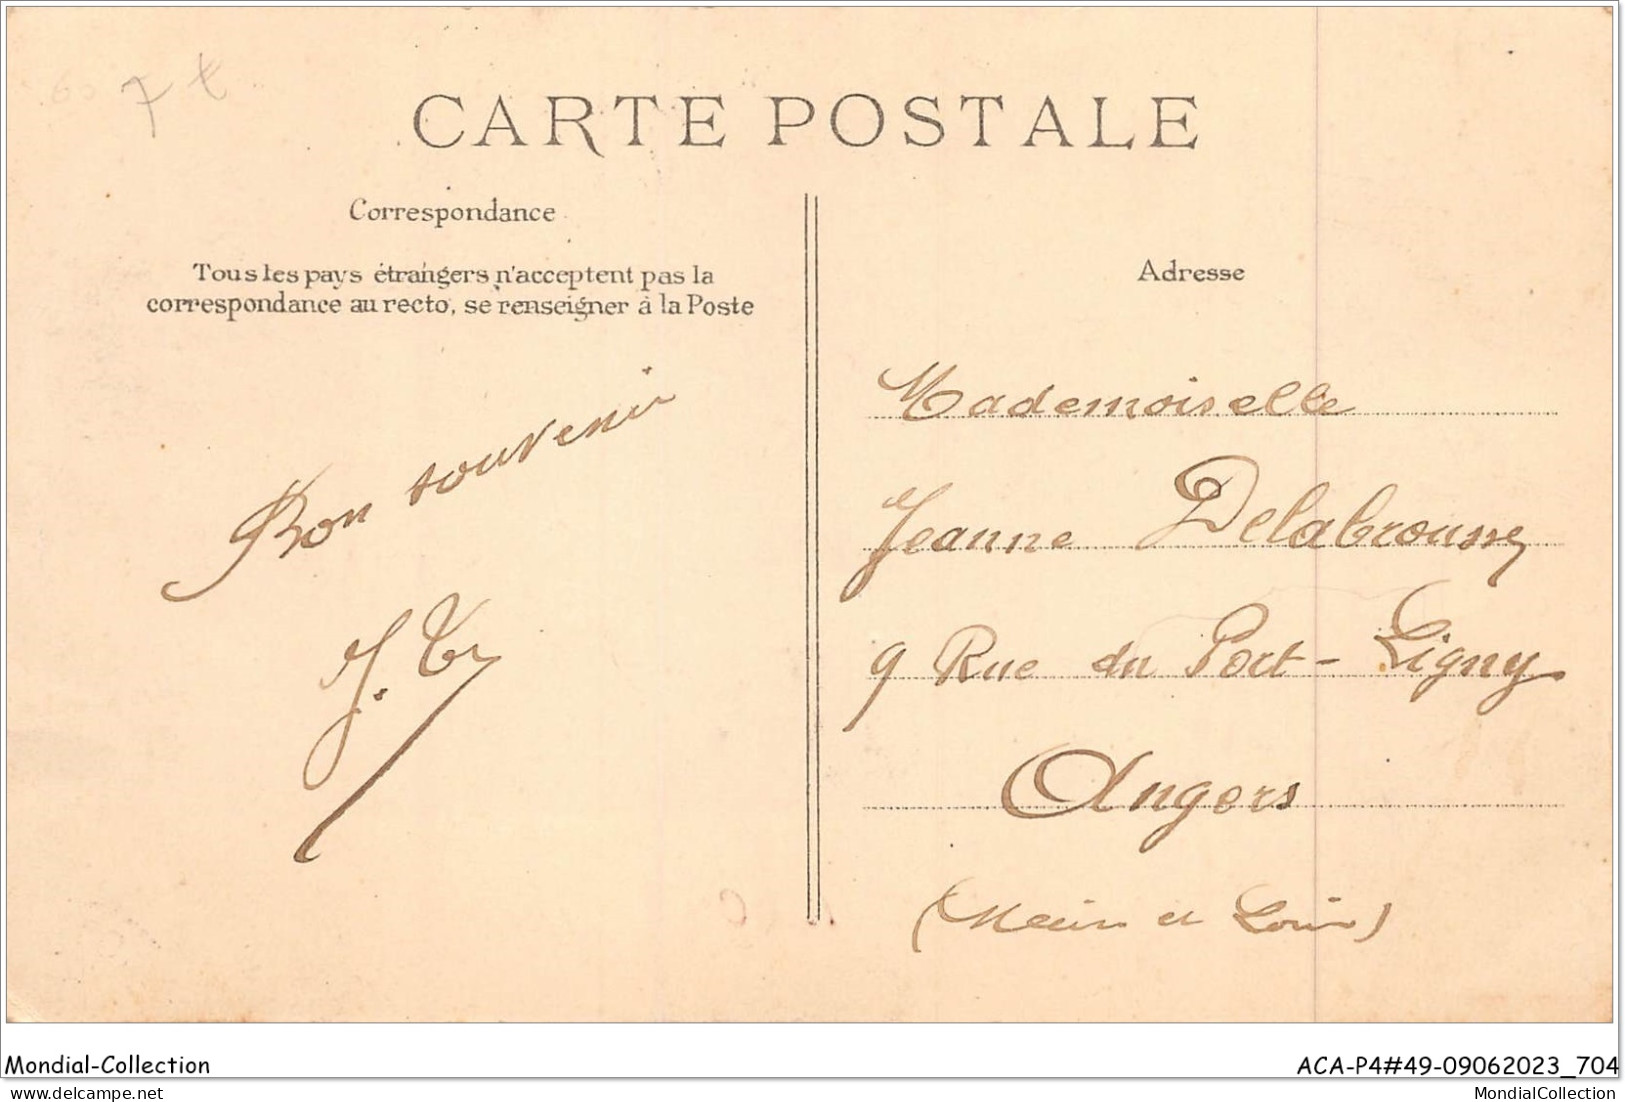 7 t
CARTE POSTALE
Correspondance
Tous les pays étrangers n'acceptent pas la
correspondance au recto, se renseigner à la Poste
Bon souvenir
Adresse
Mademoiselle
Jeanne Delabrousse
9 Rue du Port-Ligny
Angers
(Maine et Loire)
Mondial-Collection
ACA-P4#49-09062023_704
MondialCollection